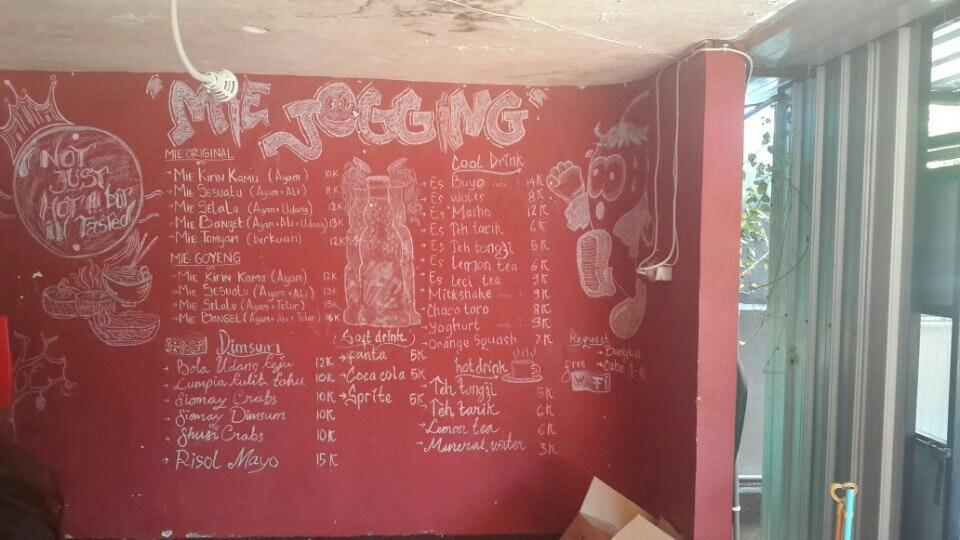 "MIE JOGGING"
NOT
JUST
HOT !!! but
IN Tasted
MIE ORIGINAL
- MIE KIRIN KAMU (AYAM) 10K
- MIE SESUATU (AYAM + ATI) 11K
- MIE SELALU (AYAM + UDANG) 12K
- MIE BANGET (AYAM + ATI + UDANG) 13K
- MIE TOMYAM (berkuah) 12K
MIE GOYENG
- MIE KIRIN KAMU (AYAM) 12K
- MIE SESUATU (AYAM + ATI) 13K
- MIE SELALU (AYAM + TELUR) 15K
- MIE BANGET (AYAM + ATI + TELUR) 16K
Dimsum
Bola Udang keju 12K
Lumpia kulit tahu 10K
Siomay Crabs 10K
Siomay Dimsum 10K
Shusi Crabs 10K
Risol Mayo 15K
Soft drink
fanta 5K
Coca cola 5K
Sprite 5K
Cool Drink
Es Buyo 14K
Es wotes 8K
Es Macho 12K
Es Teh tarik 6K
Es Teh tongzi 5K
Es Lemon tea 6K
Es leci tea 9K
Milkshake 9K
Choco taro 8K
Yoghurt 9K
Orange Squash 7K
hot drink
Teh tongzi 5K
Teh tarik 6K
Lemon tea 6K
Mineral water 3K
Request
Bungkus
Cabe
free
Wi Fi